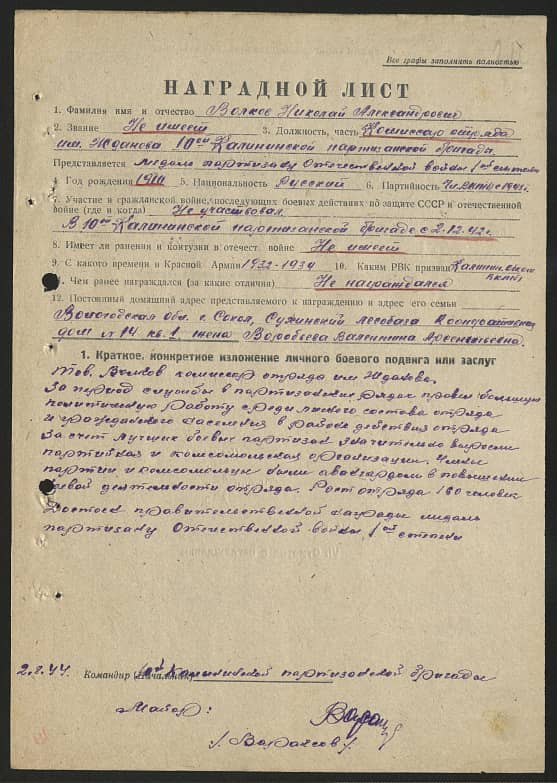 Все графы заполнять полностью
НАГРАДНОЙ ЛИСТ
1. Фамилия имя и отчество Волков Николай Александрович
2. Звание Не имеет 3. Должность, часть Комиссар отряда
им. Жданова 10ой Калининской партизанской бригады.
Представляется медали партизану Отечественной войны 1ой степени
4 Год рождения 1910 5. Национальность Русский 6. Партийность Чл. ВКП(б) с 1941г.
7. Участие в гражданской войне, последующих боевых действиях по защите СССР и отечественной
войне (где и когда) Не участвовал.
В 10ой Калининской партизанской бригаде с 2.12.42г.
8. Имеет ли ранения и контузии в отечест. войне Не имеет
9. С какого времени в Красной Армии 1932-1934 10. Каким РВК призван
Чем ранее награждался (за какие отличия) Не награждался
12. Постоянный домашний адрес представляемого к награждению и адрес его семьи
Вологодская обл. г. Сокол, Сухонский лесобаза
дом № 14 кв. 1 жена Воробьева Валентина Арсентьевна.
1. Краткое, конкретное изложение личного боевого подвига или заслуг
Тов. Волков комиссар отряда им Жданова.
За период службы в партизанских рядах провел большую
политическую работу среди личного состава отряда
и гражданского населения в районе действия отряда
За счет лучших боевых партизан значительно выросли
партийная и комсомольская организации. Члены
партии и комсомольцы были авангардом в повышении
боевой деятельности отряда. Рост отряда 160 человек
Достоен правительственной награды медаль
партизану Отечественной войны 1ой степени
2.8.44. Командир (Начальник) 10ой Калининской партизанской бригады
Майор:
/Вараксов/